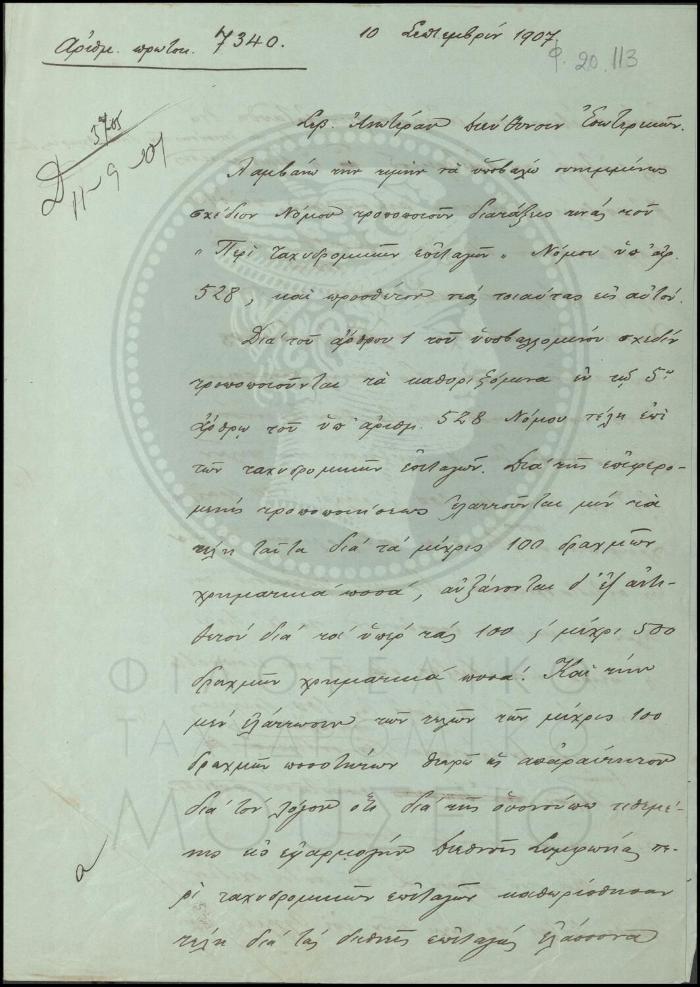 Αριθμ. πρωτοκ. 7340.
10 Σεπτεμβρίου 1907
Φ. 20. 113
3705
Δ 11-9-07
Σεβ. Ἀνωτέραν Διεύθυνσιν Ἐσωτερικῶν.
Λαμβάνω τὴν τιμὴν νὰ ὑποβάλω συνημμένως
σχέδιον Νόμου τροποποιοῦν διατάξεις τινάς τοῦ
"Περὶ ταχυδρομικῶν ἐπιταγῶν" Νόμου ὑπ' ἀρ.
528, καὶ προσθέτον τινάς τοιαύτας εἰς αὐτόν.
Διὰ τοῦ ἄρθρου 1 τοῦ ὑποβαλλομένου σχεδίου
τροποποιοῦνται τὰ καθοριζόμενα ἐν τῷ 5ῳ
ἄρθρῳ τοῦ ὑπ' ἀριθμ. 528 Νόμου τέλη ἐπὶ
τῶν ταχυδρομικῶν ἐπιταγῶν. Διὰ τῆς ἐπιφερο-
μένης τροποποιήσεως ἐλαττοῦνται μὲν τὰ
τέλη ταῦτα διὰ τὰ μέχρις 100 δραχμῶν
χρηματικά ποσά, αὐξάνονται δ' ἐξ ἀντι-
θέτου διὰ τὰ ὑπὲρ τὰς 100 ἕ μέχρι 500
δραχμῶν χρηματικά ποσά. Καὶ τὴν
μὲν ἐλάττωσιν τῶν τελῶν τῶν μέχρις 100
δραχμῶν ποσοτήτων θεωρῶ ὡς ἀπαραίτητον
διὰ τὸν λόγον ὅτι διὰ τῆς ὁσονούπω τιθεμέ-
νης εἰς ἐφαρμογὴν Διεθνοῦς Συμφωνίας πε-
ρὶ ταχυδρομικῶν ἐπιταγῶν καθωρίσθησαν
τέλη διὰ τὰς διεθνεῖς ἐπιταγάς ἐλάσσονα
α
ΦΙΛΟΤΕΛΙΚΟ
ΤΑΧΥΔΡΟΜΙΚΟ
ΜΟΥΣΕΙΟ